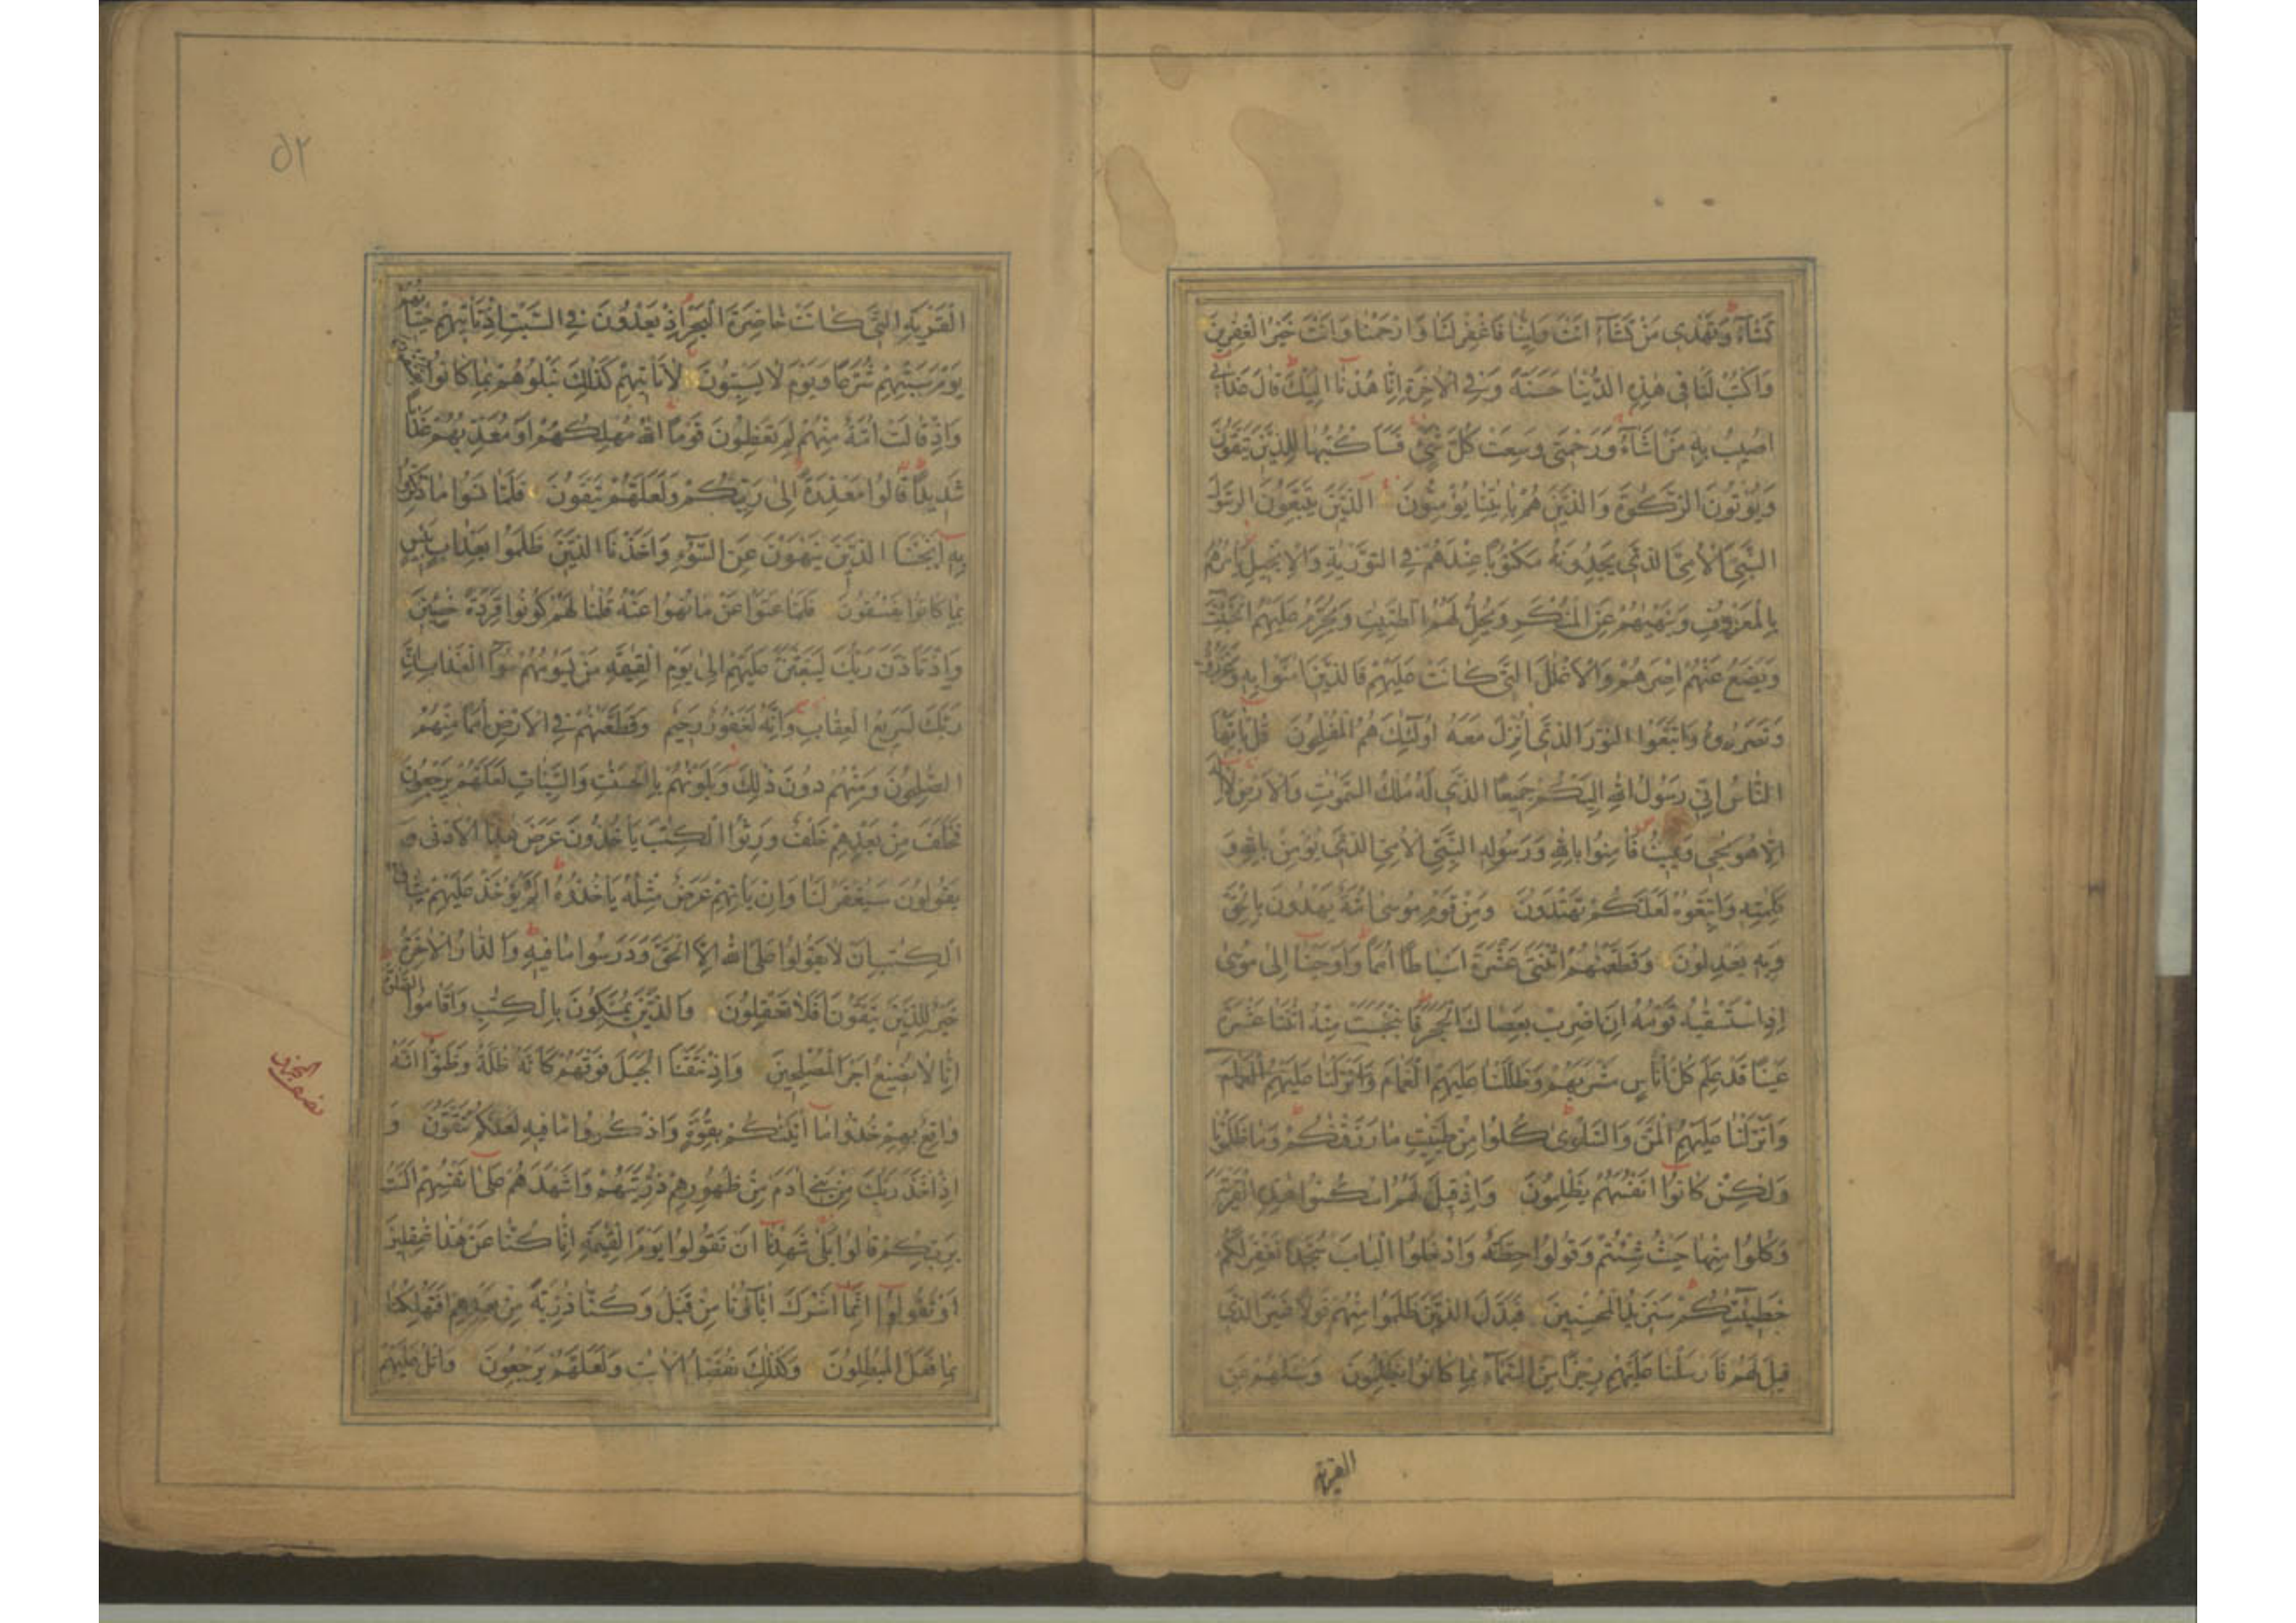 تَشَآءُ وَتَهْدِي مَنْ تَشَآءُ اَنْتَ وَلِيُّنَا فَاغْفِرْ لَنَا وَارْحَمْنَا وَاَنْتَ خَيْرُ الْغٰفِرِينَ
وَاكْتُبْ لَنَا فِي هٰذِهِ الدُّنْيَا حَسَنَةً وَفِي الْاٰخِرَةِ اِنَّا هُدْنَا اِلَيْكَ قَالَ عَذَابِي
اُصِيبُ بِهِ مَنْ اَشَآءُ وَرَحْمَتِي وَسِعَتْ كُلَّ شَيْءٍ فَسَاَكْتُبُهَا لِلَّذِينَ يَتَّقُونَ
وَيُؤْتُونَ الزَّكٰوةَ وَالَّذِينَ هُمْ بِاٰيٰتِنَا يُؤْمِنُونَ الَّذِينَ يَتَّبِعُونَ الرَّسُولَ
النَّبِيَّ الْاُمِّيَّ الَّذِي يَجِدُونَهُ مَكْتُوبًا عِنْدَهُمْ فِي التَّوْرٰيةِ وَالْاِنْجِيلِ يَأْمُرُهُمْ
بِالْمَعْرُوفِ وَيَنْهٰيهُمْ عَنِ الْمُنْكَرِ وَيُحِلُّ لَهُمُ الطَّيِّبٰتِ وَيُحَرِّمُ عَلَيْهِمُ الْخَبٰٓئِثَ
وَيَضَعُ عَنْهُمْ اِصْرَهُمْ وَالْاَغْلٰلَ الَّتِي كَانَتْ عَلَيْهِمْ فَالَّذِينَ اٰمَنُوا بِهِ وَعَزَّرُوهُ
وَنَصَرُوهُ وَاتَّبَعُوا النُّورَ الَّذِي اُنْزِلَ مَعَهُ اُولٰٓئِكَ هُمُ الْمُفْلِحُونَ قُلْ يٰٓاَيُّهَا
النَّاسُ اِنِّي رَسُولُ اللّٰهِ اِلَيْكُمْ جَمِيعًا الَّذِي لَهُ مُلْكُ السَّمٰوٰتِ وَالْاَرْضِ لَا اِلٰهَ
اِلَّا هُوَ يُحْيِي وَيُمِيتُ فَاٰمِنُوا بِاللّٰهِ وَرَسُولِهِ النَّبِيِّ الْاُمِّيِّ الَّذِي يُؤْمِنُ بِاللّٰهِ وَ
كَلِمٰتِهِ وَاتَّبِعُوهُ لَعَلَّكُمْ تَهْتَدُونَ وَمِنْ قَوْمِ مُوسٰى اُمَّةٌ يَهْدُونَ بِالْحَقِّ
وَبِهِ يَعْدِلُونَ وَقَطَّعْنٰهُمُ اثْنَتَيْ عَشْرَةَ اَسْبَاطًا اُمَمًا وَاَوْحَيْنَا اِلٰى مُوسٰى
اِذِ اسْتَسْقٰيهُ قَوْمُهُ اَنِ اضْرِبْ بِعَصَاكَ الْحَجَرَ فَانْبَجَسَتْ مِنْهُ اثْنَتَا عَشْرَةَ
عَيْنًا قَدْ عَلِمَ كُلُّ اُنَاسٍ مَشْرَبَهُمْ وَظَلَّلْنَا عَلَيْهِمُ الْغَمَامَ وَاَنْزَلْنَا عَلَيْهِمُ الْغَمَامَ
وَاَنْزَلْنَا عَلَيْهِمُ الْمَنَّ وَالسَّلْوٰى كُلُوا مِنْ طَيِّبٰتِ مَا رَزَقْنٰكُمْ وَمَا ظَلَمُونَا
وَلٰكِنْ كَانُوا اَنْفُسَهُمْ يَظْلِمُونَ وَاِذْ قِيلَ لَهُمُ اسْكُنُوا هٰذِهِ الْقَرْيَةَ
وَكُلُوا مِنْهَا حَيْثُ شِئْتُمْ وَقُولُوا حِطَّةٌ وَادْخُلُوا الْبَابَ سُجَّدًا نَغْفِرْ لَكُمْ
خَطِيٓـٰٔتِكُمْ سَنَزِيدُ الْمُحْسِنِينَ فَبَدَّلَ الَّذِينَ ظَلَمُوا مِنْهُمْ قَوْلًا غَيْرَ الَّذِي
قِيلَ لَهُمْ فَاَرْسَلْنَا عَلَيْهِمْ رِجْزًا مِنَ السَّمَآءِ بِمَا كَانُوا يَظْلِمُونَ وَسْـَٔلْهُمْ عَنِ
القرية
۵۲
الْقَرْيَةِ الَّتِي كَانَتْ حَاضِرَةَ الْبَحْرِ اِذْ يَعْدُونَ فِي السَّبْتِ اِذْ تَأْتِيهِمْ حِيتَانُهُمْ
يَوْمَ سَبْتِهِمْ شُرَّعًا وَيَوْمَ لَا يَسْبِتُونَ لَا تَأْتِيهِمْ كَذٰلِكَ نَبْلُوهُمْ بِمَا كَانُوا يَفْسُقُونَ
وَاِذْ قَالَتْ اُمَّةٌ مِنْهُمْ لِمَ تَعِظُونَ قَوْمًا اللّٰهُ مُهْلِكُهُمْ اَوْ مُعَذِّبُهُمْ عَذَابًا
شَدِيدًا قَالُوا مَعْذِرَةً اِلٰى رَبِّكُمْ وَلَعَلَّهُمْ يَتَّقُونَ فَلَمَّا نَسُوا مَا ذُكِّرُوا
بِهِ اَنْجَيْنَا الَّذِينَ يَنْهَوْنَ عَنِ السُّوٓءِ وَاَخَذْنَا الَّذِينَ ظَلَمُوا بِعَذَابٍ بَئِيسٍ
بِمَا كَانُوا يَفْسُقُونَ فَلَمَّا عَتَوْا عَنْ مَا نُهُوا عَنْهُ قُلْنَا لَهُمْ كُونُوا قِرَدَةً خٰسِـِٔينَ
وَاِذْ تَاَذَّنَ رَبُّكَ لَيَبْعَثَنَّ عَلَيْهِمْ اِلٰى يَوْمِ الْقِيٰمَةِ مَنْ يَسُومُهُمْ سُوٓءَ الْعَذَابِ اِنَّ
رَبَّكَ لَسَرِيعُ الْعِقَابِ وَاِنَّهُ لَغَفُورٌ رَحِيمٌ وَقَطَّعْنٰهُمْ فِي الْاَرْضِ اُمَمًا مِنْهُمُ
الصّٰلِحُونَ وَمِنْهُمْ دُونَ ذٰلِكَ وَبَلَوْنٰهُمْ بِالْحَسَنٰتِ وَالسَّيِّاٰتِ لَعَلَّهُمْ يَرْجِعُونَ
فَخَلَفَ مِنْ بَعْدِهِمْ خَلْفٌ وَرِثُوا الْكِتٰبَ يَأْخُذُونَ عَرَضَ هٰذَا الْاَدْنٰى وَ
يَقُولُونَ سَيُغْفَرُ لَنَا وَاِنْ يَأْتِهِمْ عَرَضٌ مِثْلُهُ يَأْخُذُوهُ اَلَمْ يُؤْخَذْ عَلَيْهِمْ مِيثَاقُ
الْكِتٰبِ اَنْ لَا يَقُولُوا عَلَى اللّٰهِ اِلَّا الْحَقَّ وَدَرَسُوا مَا فِيهِ وَالدَّارُ الْاٰخِرَةُ
خَيْرٌ لِلَّذِينَ يَتَّقُونَ اَفَلَا تَعْقِلُونَ وَالَّذِينَ يُمَسِّكُونَ بِالْكِتٰبِ وَاَقَامُوا الصَّلٰوةَ
اِنَّا لَا نُضِيعُ اَجْرَ الْمُصْلِحِينَ وَاِذْ نَتَقْنَا الْجَبَلَ فَوْقَهُمْ كَاَنَّهُ ظُلَّةٌ وَظَنُّوا اَنَّهُ
وَاقِعٌ بِهِمْ خُذُوا مَا اٰتَيْنٰكُمْ بِقُوَّةٍ وَاذْكُرُوا مَا فِيهِ لَعَلَّكُمْ تَتَّقُونَ وَ
اِذْ اَخَذَ رَبُّكَ مِنْ بَنِي اٰدَمَ مِنْ ظُهُورِهِمْ ذُرِّيَّتَهُمْ وَاَشْهَدَهُمْ عَلٰى اَنْفُسِهِمْ اَلَسْتُ
بِرَبِّكُمْ قَالُوا بَلٰى شَهِدْنَا اَنْ تَقُولُوا يَوْمَ الْقِيٰمَةِ اِنَّا كُنَّا عَنْ هٰذَا غٰفِلِينَ
اَوْ تَقُولُوا اِنَّمَا اَشْرَكَ اٰبَآؤُنَا مِنْ قَبْلُ وَكُنَّا ذُرِّيَّةً مِنْ بَعْدِهِمْ اَفَتُهْلِكُنَا
بِمَا فَعَلَ الْمُبْطِلُونَ وَكَذٰلِكَ نُفَصِّلُ الْاٰيٰتِ وَلَعَلَّهُمْ يَرْجِعُونَ وَاتْلُ عَلَيْهِمْ
نصف الحزب